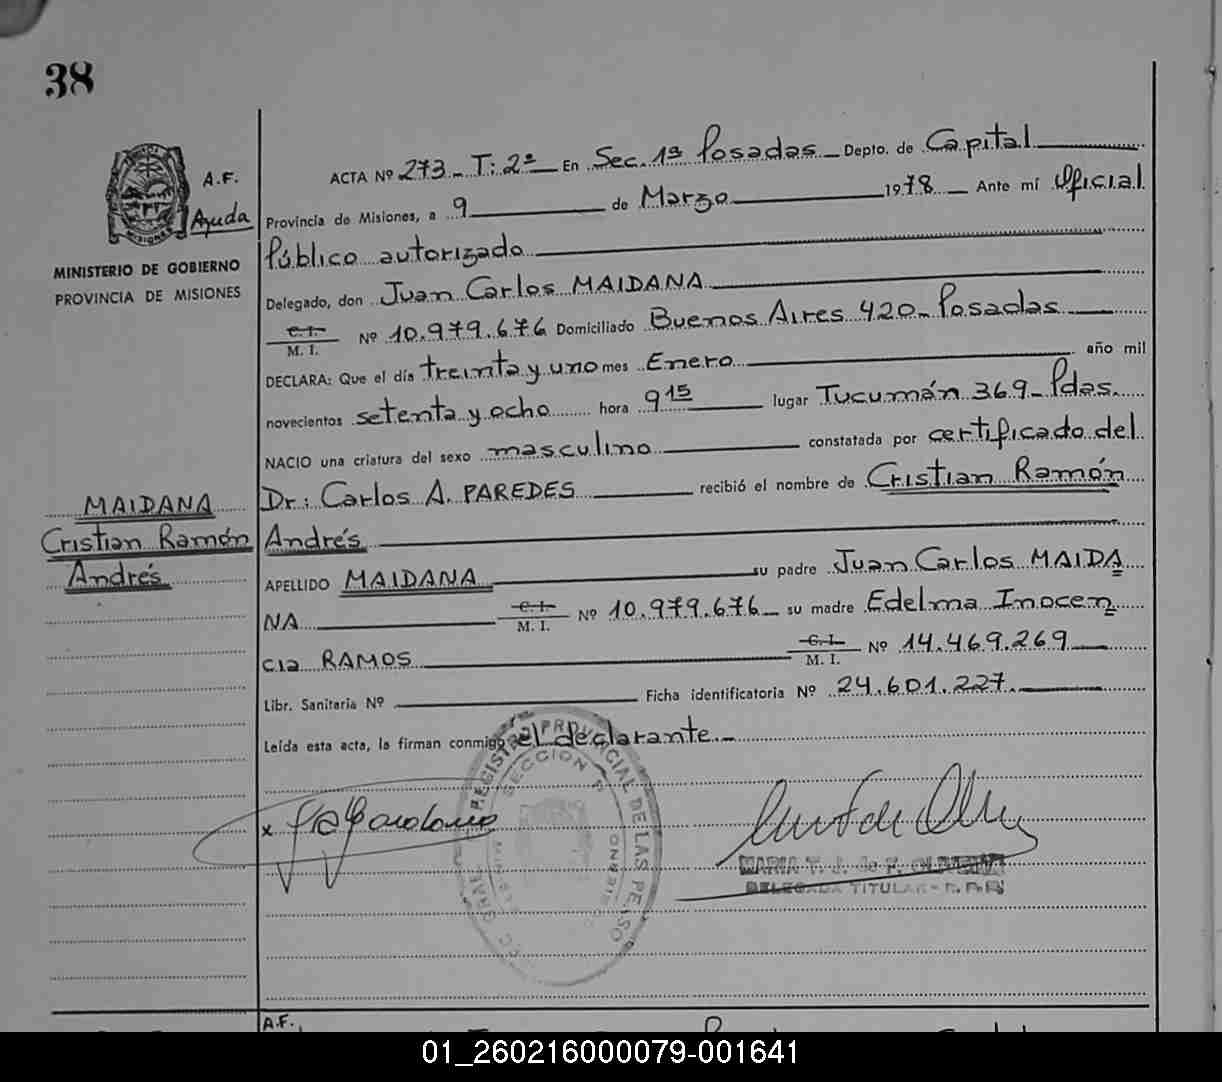 38
A.F.
Ayuda
MINISTERIO DE GOBIERNO
PROVINCIA DE MISIONES
ACTA Nº 273 - T: 2º En Sec. 1ª Posadas Depto. de Capital
Provincia de Misiones, a 9 de Marzo 1978 Ante mí Oficial
Público autorizado
Delegado, don Juan Carlos MAIDANA
C.I. M. I. Nº 10.979.676 Domiciliado Buenos Aires 420 - Posadas
DECLARA: Que el día treinta y uno mes Enero año mil
novecientos setenta y ocho hora 9 15 lugar Tucumán 369 - Pdas.
NACIO una criatura del sexo masculino constatada por certificado del
Dr: Carlos A. PAREDES recibió el nombre de Cristian Ramón
Andrés
MAIDANA
Cristian Ramón
Andrés
APELLIDO MAIDANA su padre Juan Carlos MAIDA
NA C.I. M. I. Nº 10.979.676 - su madre Edelma Inocen
cia RAMOS C.I. M. I. Nº 14.469.269
Libr. Sanitaria Nº Ficha identificatoria Nº 24.601.227.
Leída esta acta, la firman conmigo el declarante.-
REGISTRO PROVINCIAL DE LAS PERSO
SECCION
x
MARIA T. J. de F.
DELEGADA TITULAR - R. P. P.
A.F.
01_260216000079-001641